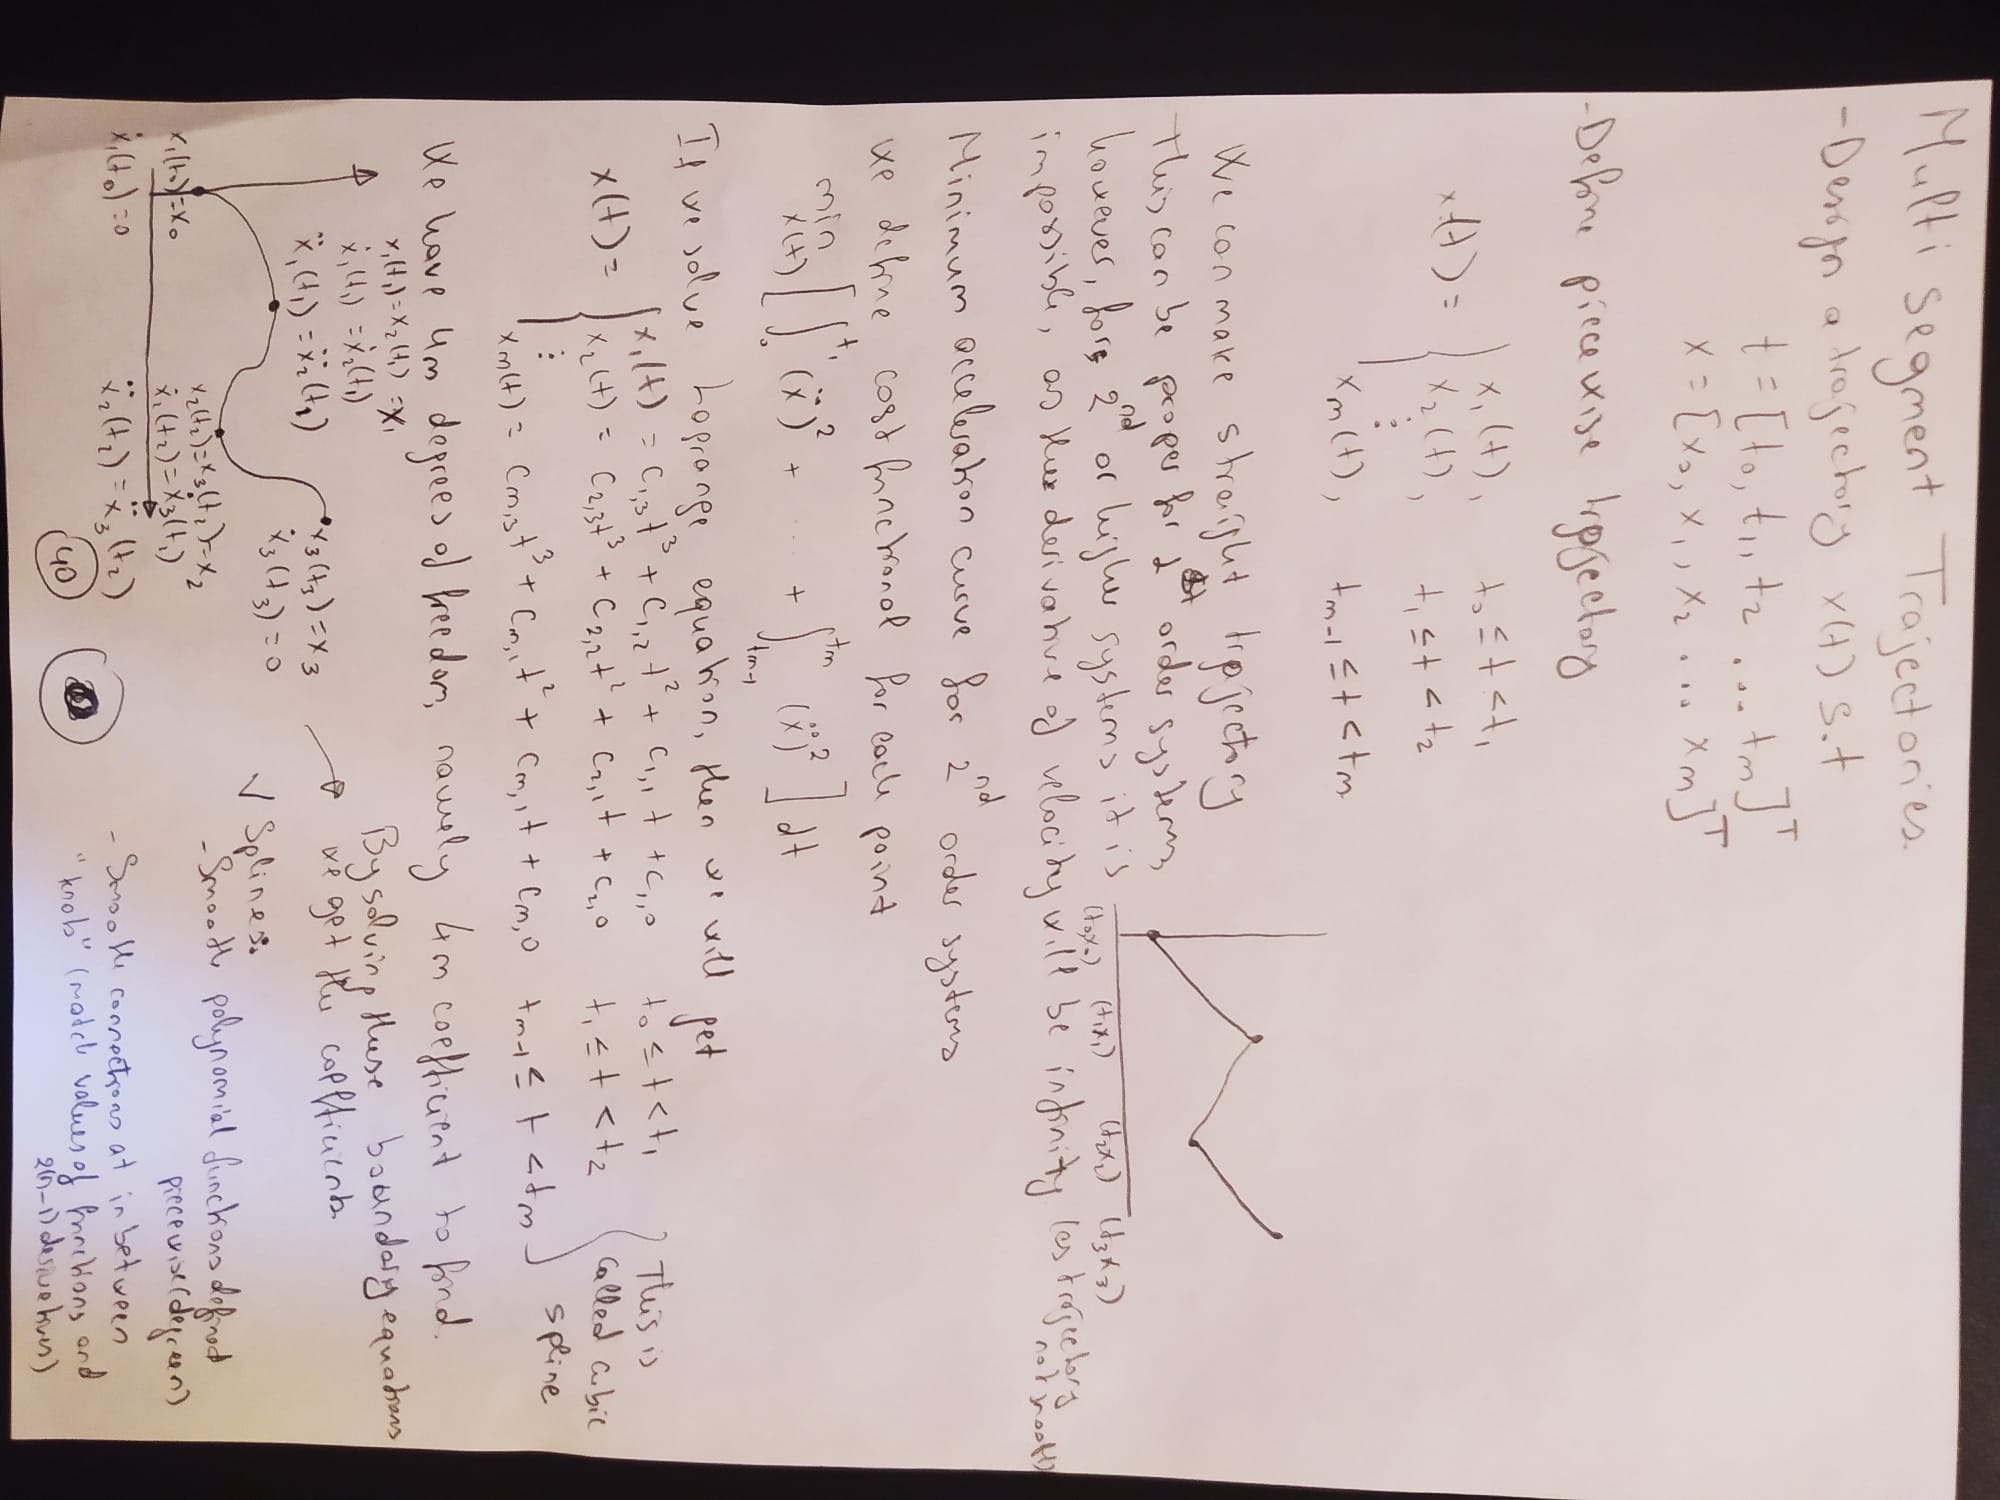 Multi Segment Trajectories.
- Design a trajectory x(t) s.t
t = [t0, t1, t2 ... tm]^T
x = [x0, x1, x2 ... xm]^T
- Define piecewise trajectory
x(t) = { x1(t), t0 ≤ t < t1
x2(t), t1 ≤ t < t2
⋮
xm(t), tm-1 ≤ t < tm
We can make streight trajectory
This can be proper for 1st order systems,
however, for 2nd or higher systems it is
impossible, as the derivative of velocity will be infinity (as trajectory
not smooth)
(t0x0) (t1x1) (t2x2) (t3x3)
Minimum acceleration curve for 2nd order systems
We define cost functional for each point
min x(t) [ ∫0^t1 (ẍ)² + ... + ∫tm-1^tm (ẍ)² ] dt
If we solve Lagrange equation, then we will get
x(t) = { x1(t) = c1,3t³ + c1,2t² + c1,1t + c1,0 t0 ≤ t < t1
x2(t) = c2,3t³ + c2,2t² + c2,1t + c2,0 t1 ≤ t < t2
⋮
xm(t) = cm,3t³ + cm,1t² + cm,1t + cm,0 tm-1 ≤ t < tm
This is
called cubic
spline
We have 4m degrees of freedom, namely 4m coefficient to find.
x1(t1) = x2(t1) = x1
ẋ1(t1) = ẋ2(t1)
ẍ1(t1) = ẍ2(t1)
x1(t0) = x0
ẋ1(t0) = 0
x2(t2) = x3(t2) = x2
ẋ2(t2) = ẋ3(t2)
ẍ2(t2) = ẍ3(t2)
x3(t3) = x3
ẋ3(t3) = 0
By solving these boundary equations
we get the coefficients.
40
√ Splines:
- Smooth polynomial functions defined
piecewise (degree n)
- Smooth connections at in between
"knobs" (match values of functions and
2(n-1) derivatives)